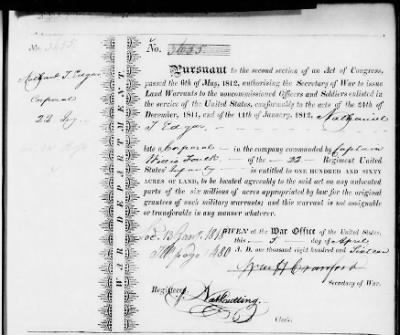 No. 3655
No. 3655.
PURSUANT to the second section of an Act of Congress,
passed the 6th of May, 1812, authorising the Secretary of War to issue
Land Warrants to the noncommissioned Officers and Soldiers enlisted in
the service of the United States, conformably to the acts of the 24th of
December, 1811, and of the 11th of January, 1812, Nathaniel
T Edgar
late a Corporal in the company commanded by Captain
Foulk of the 22 Regiment United
States' Infantry is entitled to ONE HUNDRED AND SIXTY
ACRES OF LAND, to be located agreeably to the said act on any unlocated
parts of the six millions of acres appropriated by law for the original
grantees of such military warrants; and this warrant is not assignable
or transferable in any manner whatever.
GIVEN at the War Office of the United States,
this 5 day of April
A. D. one thousand eight hundred and Sixteen
Wm H Crawford
Secretary of War.
Registered,
Nat Cutting
Clerk.
Nathaniel T. Edgar
Corporal
22 Inf.
WAR DEPARTMENT.
page 480